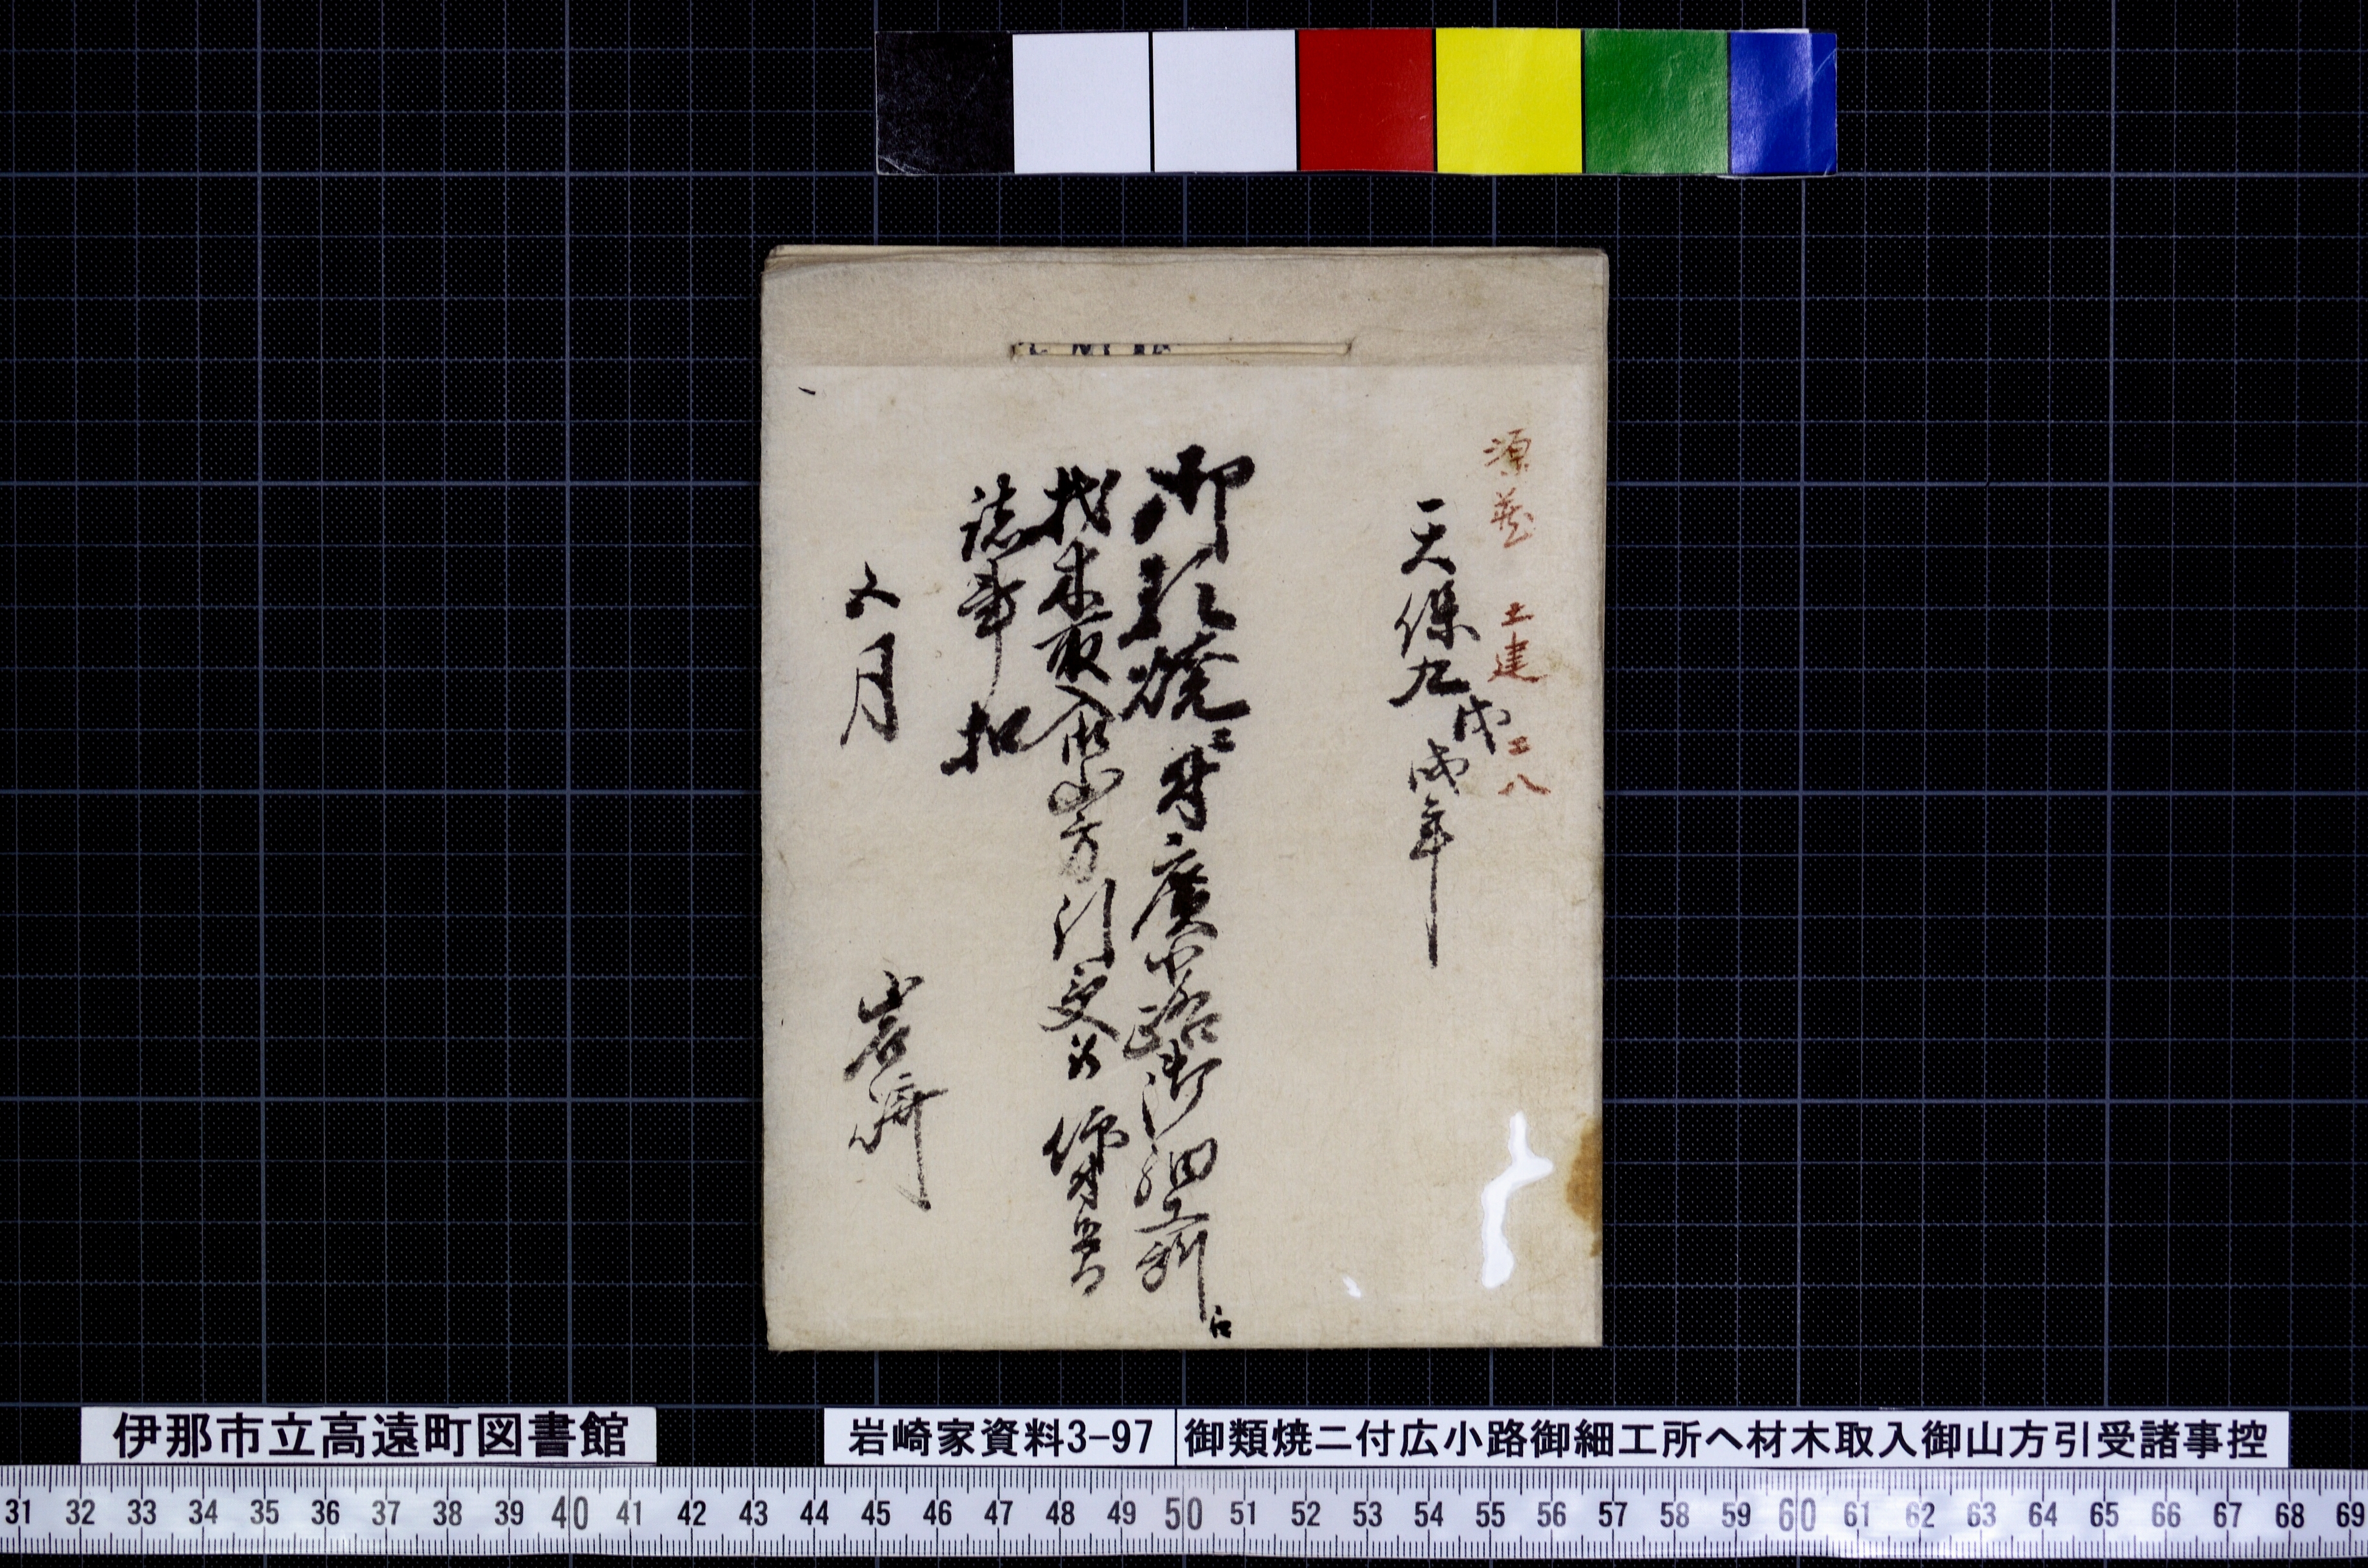 源蔵 土建 二八
天保九戊戌年
御類焼ニ付廣小路御細工所江
材木取入御山方引受
諸事扣
五月
岩崎
伊那市立高遠町図書館
岩崎家資料3-97
御類焼ニ付広小路御細工所ヘ材木取入御山方引受諸事控
31 32 33 34 35 36 37 38 39 40 41 42 43 44 45 46 47 48 49 50 51 52 53 54 55 56 57 58 59 60 61 62 63 64 65 66 67 68 69